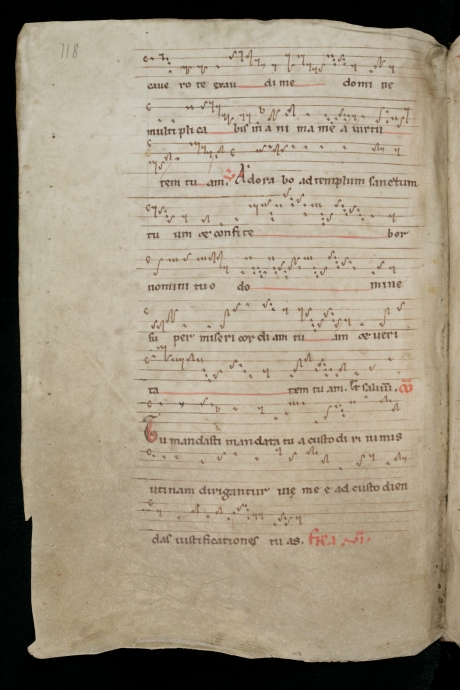 118
ciue ro te gen di me do mi ne
multi pli ca bis in a ni ma me a uirtu
tem tu am. Adora bo ad templum sanctum
tu um et confite bor
nomini tuo do mine
su per miseri cor di am tu am et ueri
ta tem tu am.
Tu mandasti mandata tu a custo di ri nimis
utinam dirigantur uie me e ad custo dien
das iustificationes tu as.